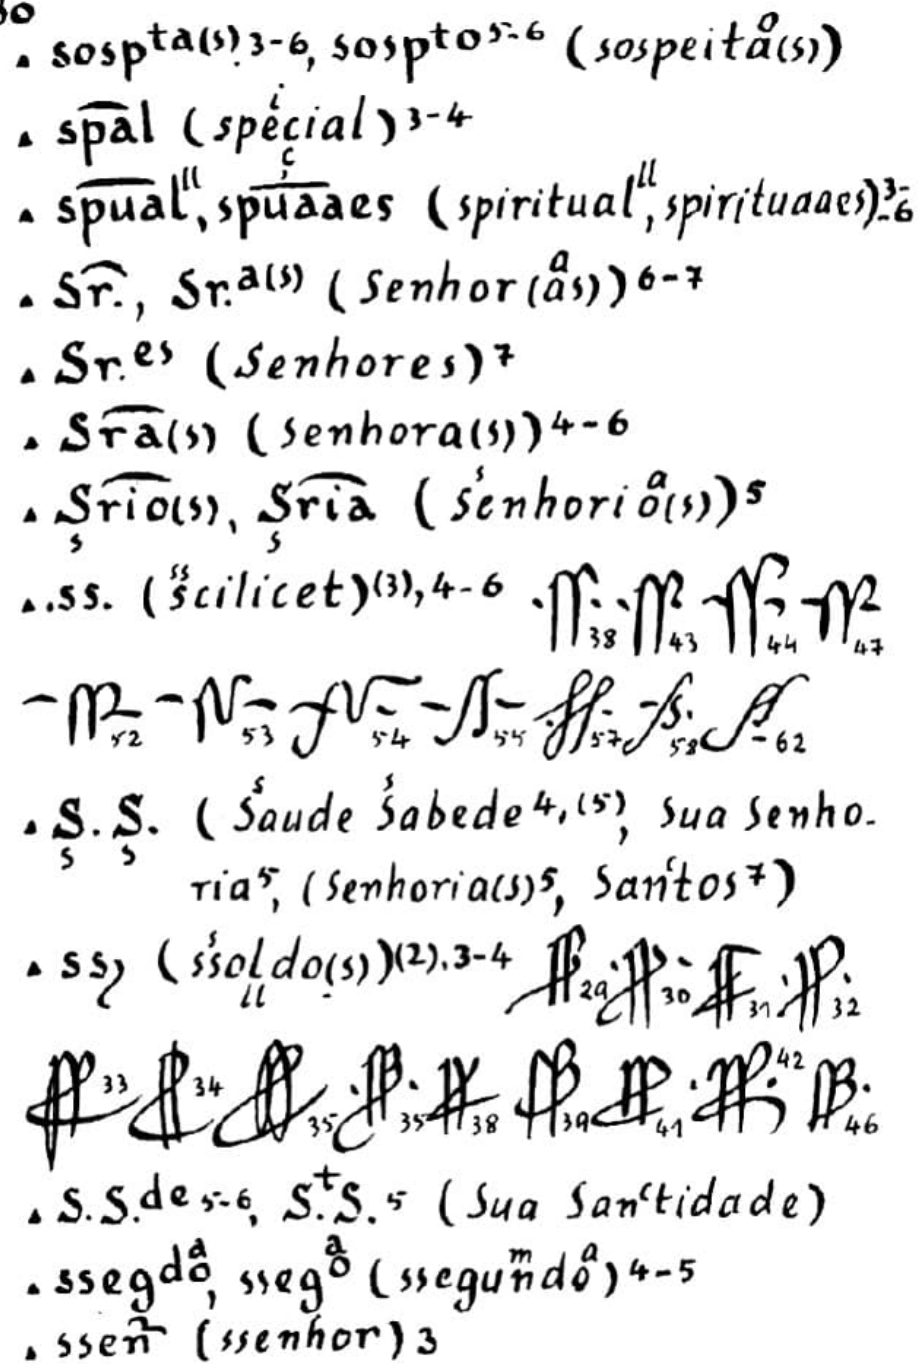 . sospta(s).3-6, sospto5-6 (sospeitåo(s))
. spal (spécial)3-4
. spualll, spuaaes (spiritualll, spirituaaes)3-6
. Sr., Sr.a(s) (Senhor(as))6-7
. Sr.es (Senhores)7
. Sra(s) (Senhora(s))4-6
. Srio(s), Sria (senhorioa(s))5
. .ss. (scilicet)(3),4-6 38 43 44 47
52 53 54 55 57 58 62
. S. S. (Saude Sabede4,(5), Sua Senho-
ria5, (Senhoria(s)5, Santos7)
. ss (ssoldo(s))(2).3-4 29 30 31 32
33 34 35 35 38 39 41 42 46
. S.S.de5-6, S.tS.5 (Sua Sanctidade)
. ssegdoa, ssegoa (ssegundoa)4-5
. ssen (ssenhor)3